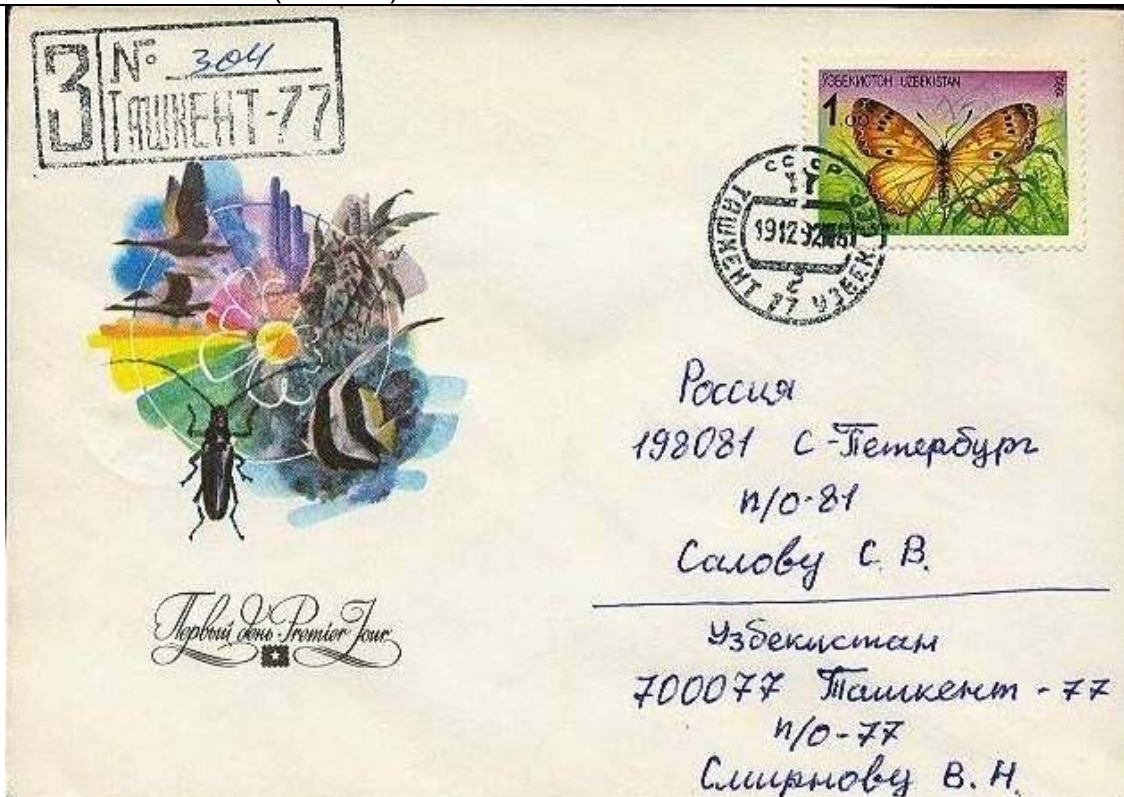 З № 304
ТАШКЕНТ-77
ЎЗБЕКИСТОН UZBEKISTAN
1.00
СССР
191292
ТАШКЕНТ 77 УЗБЕК
2
Россия
198081 С-Петербург
п/о-81
Салову С. В.
Узбекистан
700077 Ташкент - 77
п/о-77
Смирнову В. Н.
Первый день · Premier Jour